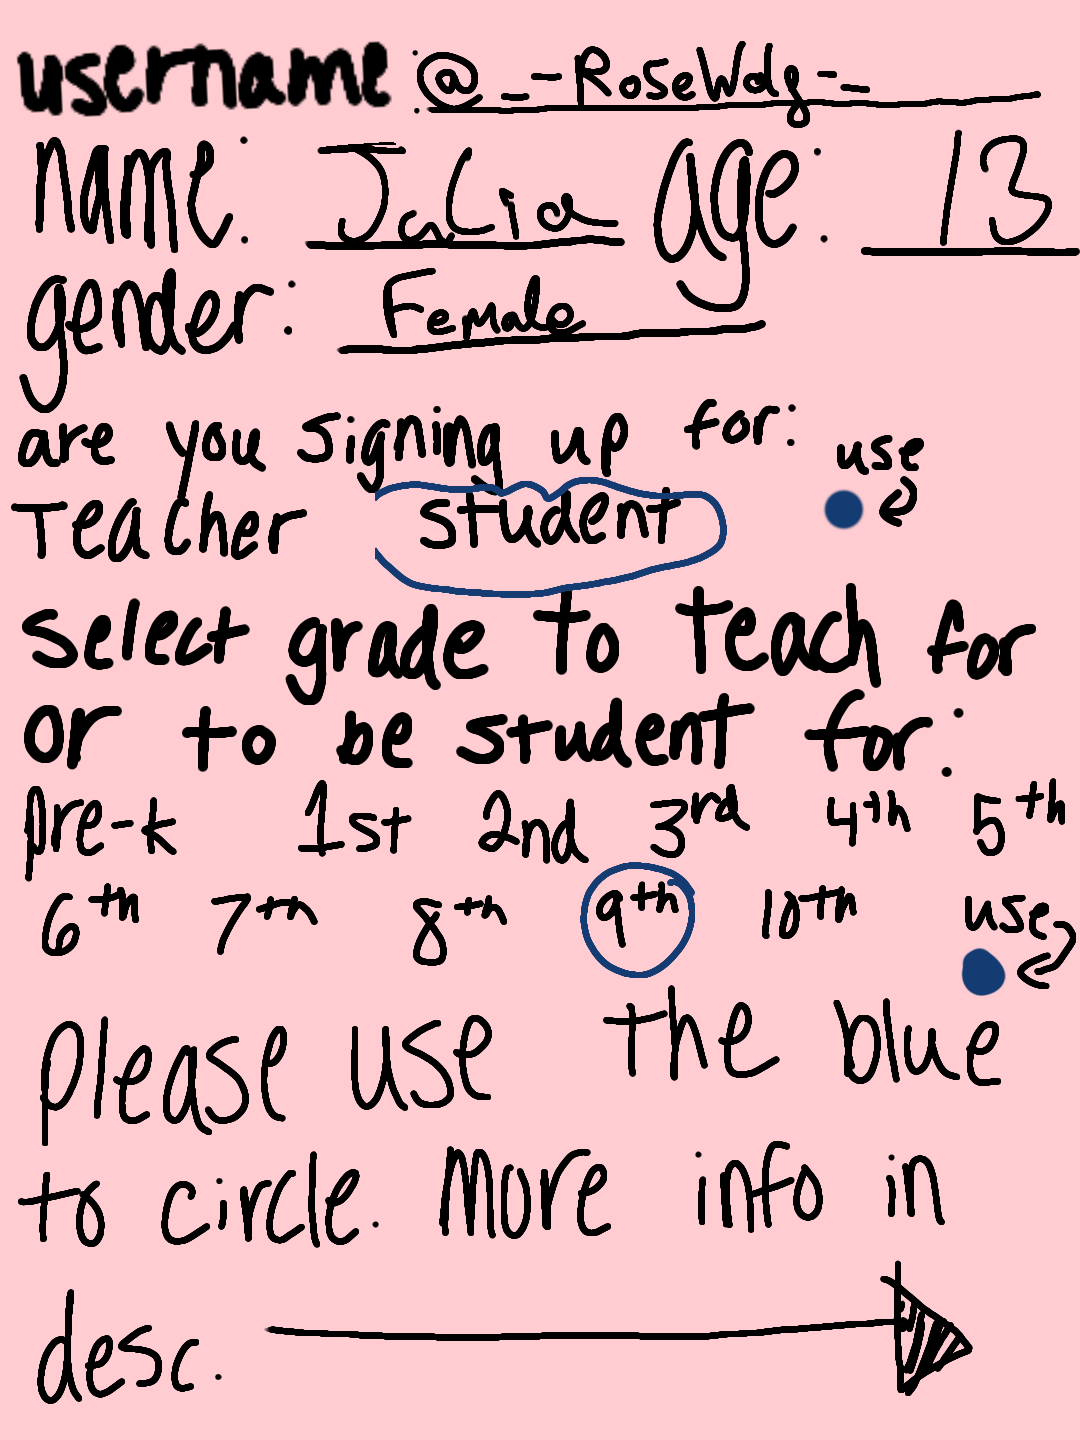 username: @_-RoseWdg-_
name: JaLia age: 13
gender: Female
are you signing up for: use
Teacher student
select grade to teach for
or to be student for:
pre-k 1st 2nd 3rd 4th 5th
6th 7th 8th 9th 10th use
please use the blue
to circle. More info in
desc.